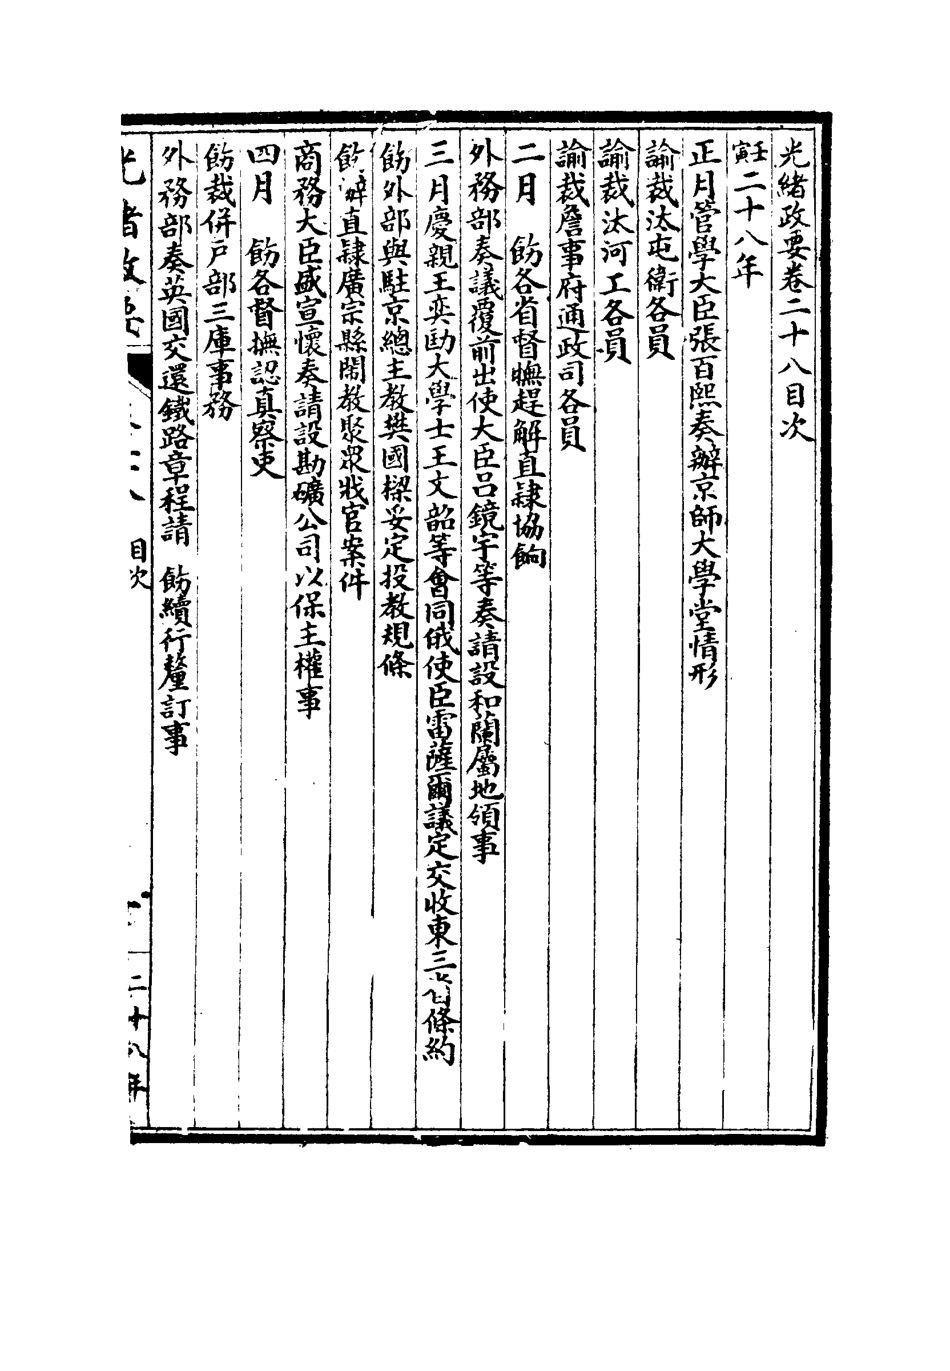 光緒政要卷二十八目次
壬寅二十八年
正月管學大臣張百熙奏辦京師大學堂情形
諭裁汰屯衛各員
諭裁汰河工各員
諭裁詹事府通政司各員
二月 飭各省督撫趕解直隸協餉
外務部奏議覆前出使大臣呂鏡宇等奏請設和蘭屬地領事
三月慶親王奕劻大學士王文韶等會同俄使臣雷薩爾議定交收東三省條約
飭外部與駐京總主教樊國樑妥定投教規條
飭辦直隸廣宗縣鬧教聚眾戕官案件
商務大臣盛宣懷奏請設勘礦公司以保主權事
四月 飭各督撫認真察吏
飭裁併戶部三庫事務
外務部奏英國交還鐵路章程請 飭續行釐訂事
光緒政要 目次 二十八年